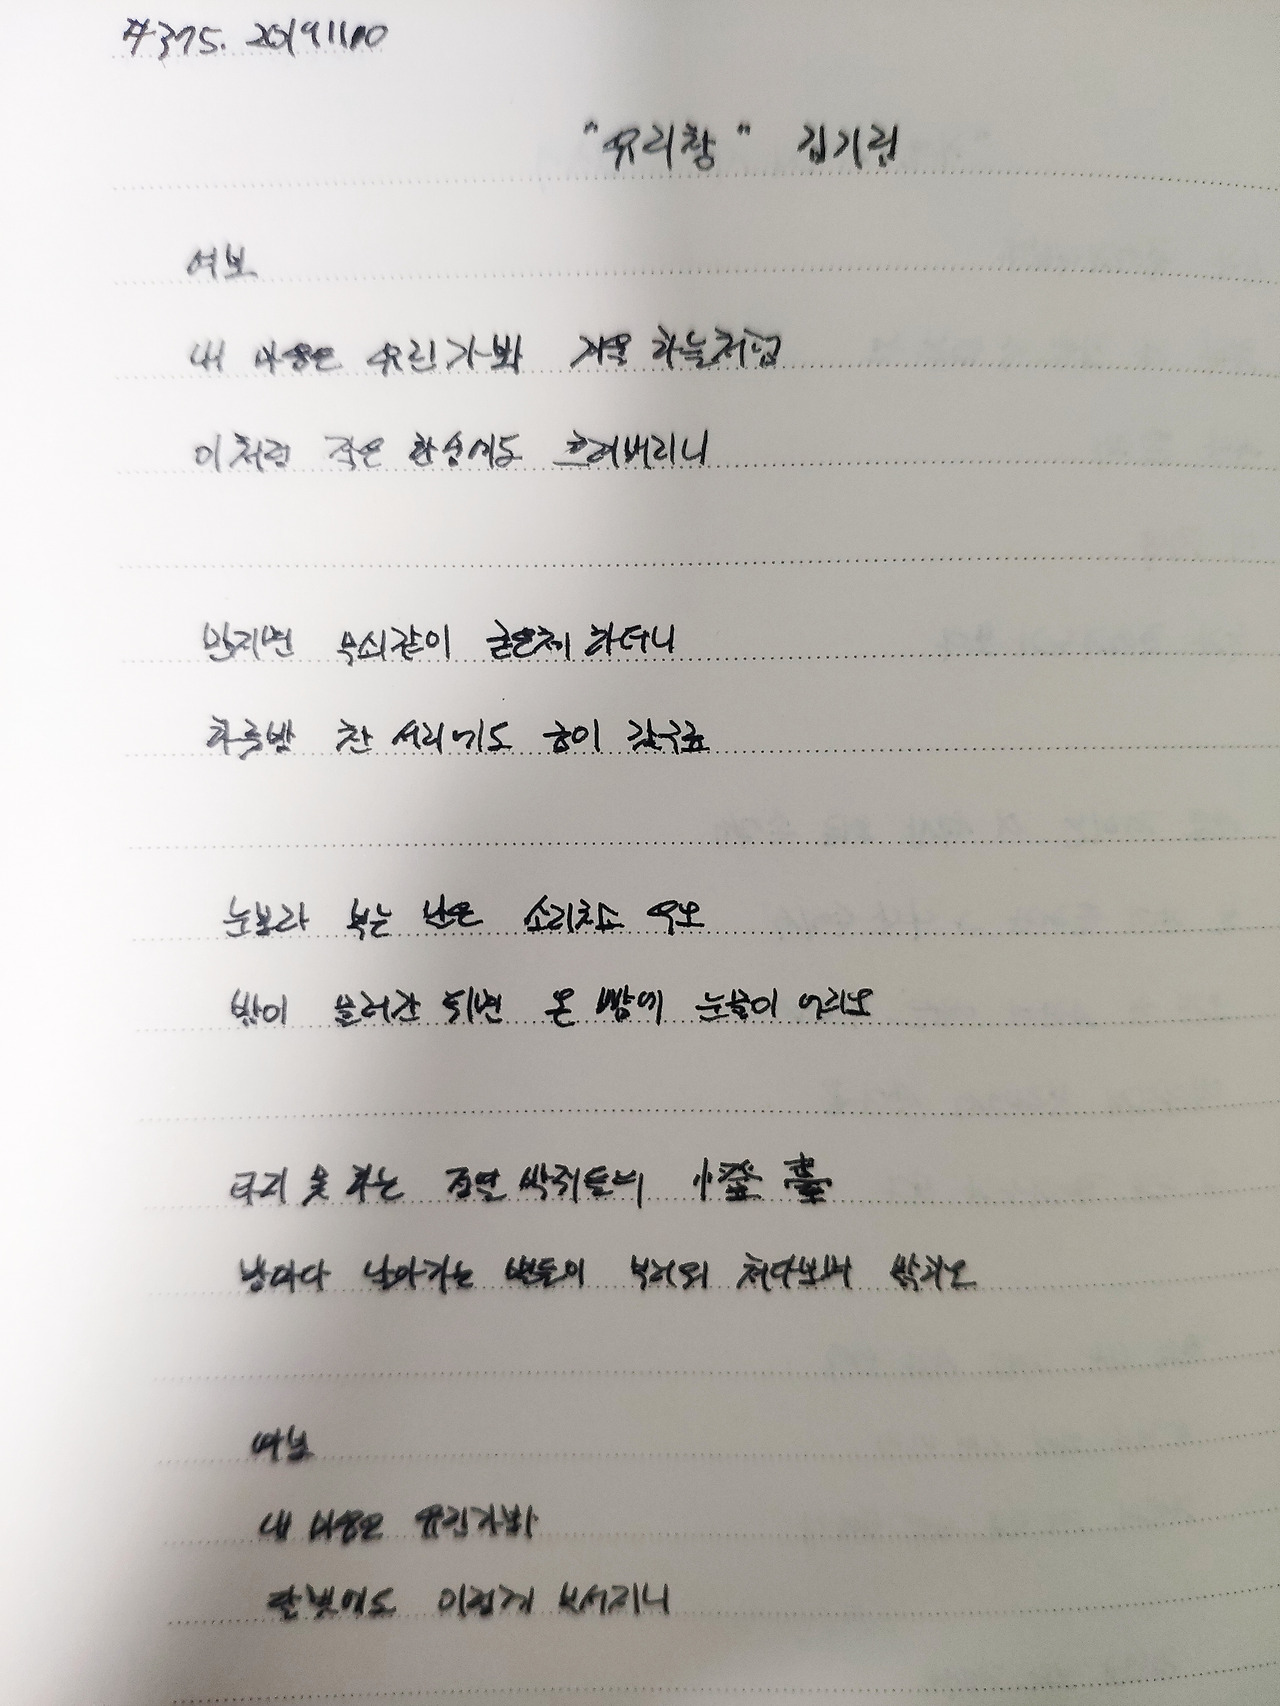 #375. 20191110
"유리창" 김기림
여보
내 마음은 유린가봐 겨울 하늘처럼
이처럼 작은 한숨에도 흐려버리니
만지면 무쇠같이 굳은체 하더니
하룻밤 찬 서리에도 금이 갔구료
눈보라 부는 날은 소리치고 우오
밤이 물러간 뒤면 온 뺨에 눈물이 어리오
타지 못 하는 정열 박쥐들의
밤마다 날아가는 별들이 부러워 쳐다보며 밝히오
여보
내 마음은 유린가봐
달빛에도 이렇게 부서지니